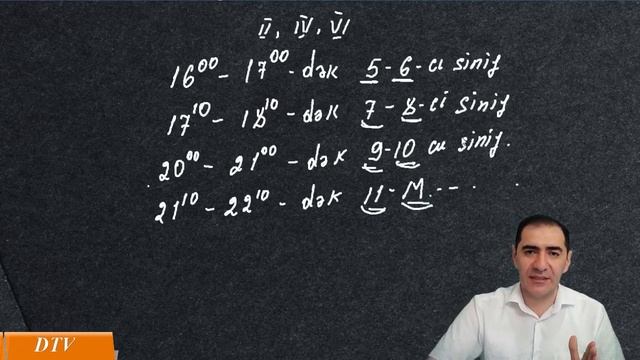 II, IV, VI
16⁰⁰ - 17⁰⁰ - dək 5 - 6 - cı sinif
17¹⁰ - 18¹⁰ - dək 7 - 8 - ci sinif
20⁰⁰ - 21⁰⁰ - dək 9 - 10 cu sinif.
21¹⁰ - 22¹⁰ - dək 11 - M. - -
DTV